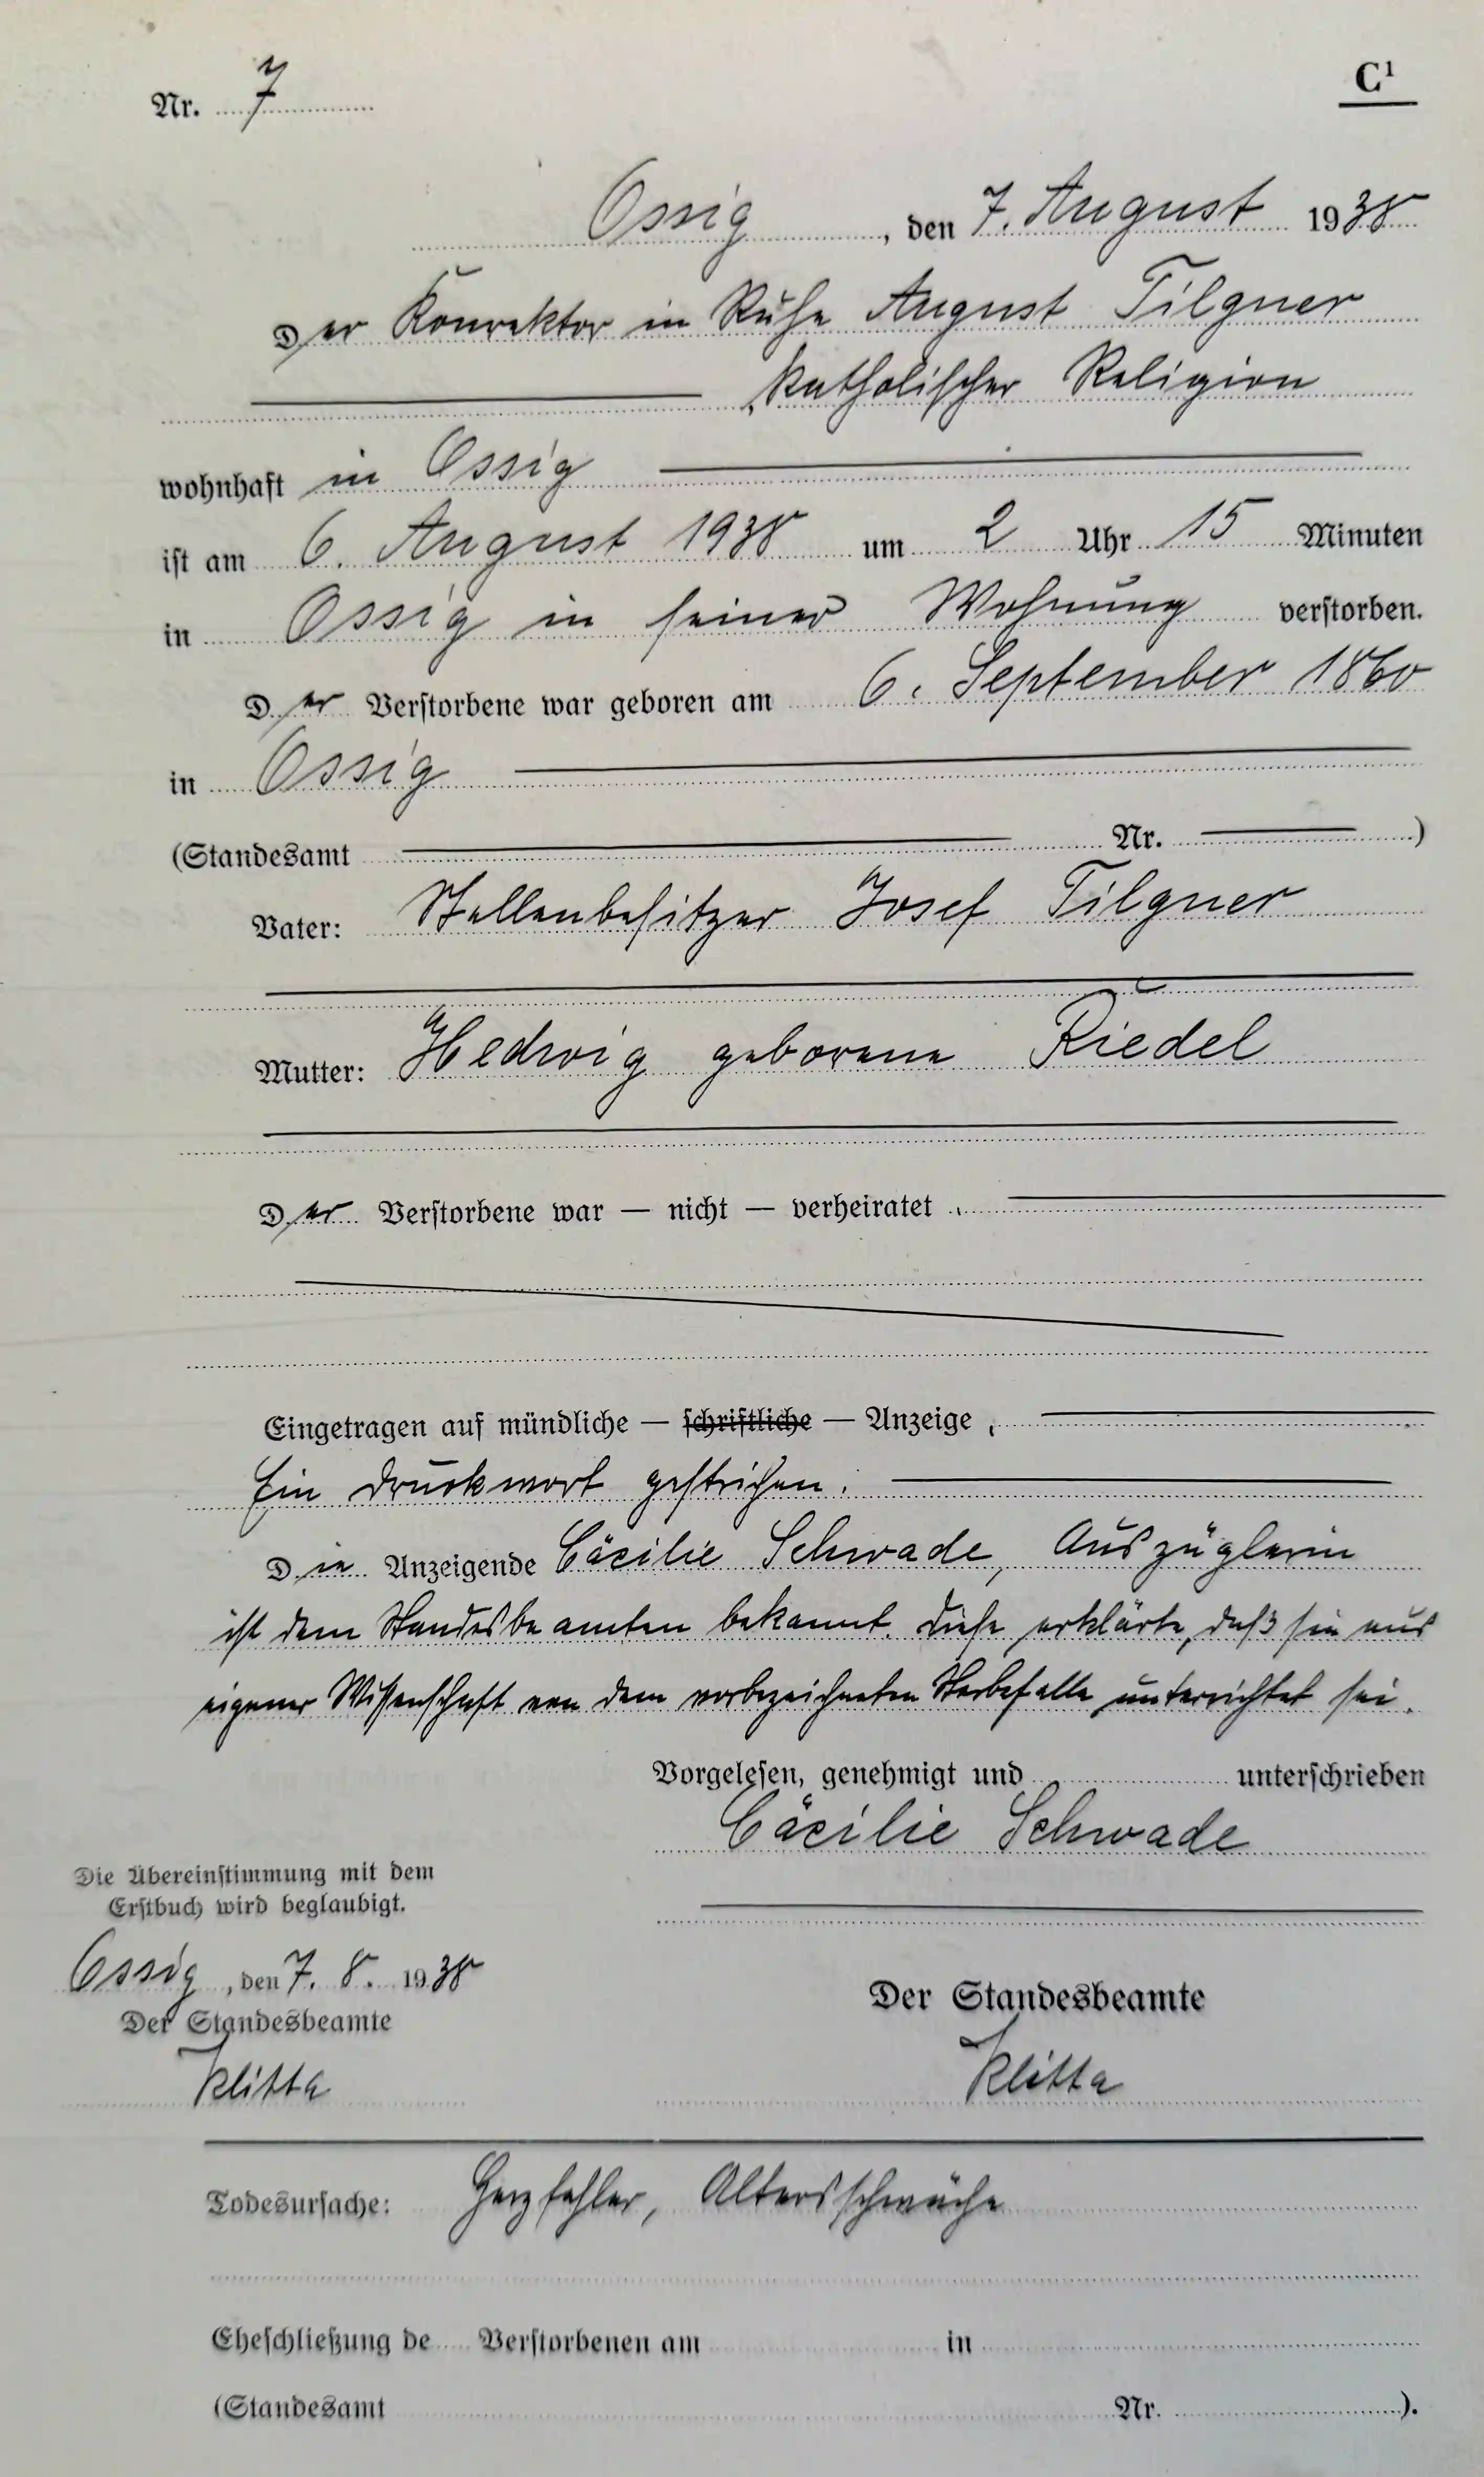 Nr. 7
C¹
Ossig, den 7. August 1938
Der Konrektor in Ruhe August Tilgner
, katholischer Religion
wohnhaft in Ossig
ist am 6. August 1938 um 2 Uhr 15 Minuten
in Ossig in seiner Wohnung verstorben.
Der Verstorbene war geboren am 6. September 1860
in Ossig
(Standesamt Nr. )
Vater: Stellenbesitzer Josef Tilgner
Mutter: Hedwig geborene Riedel
Der Verstorbene war — nicht — verheiratet .
Eingetragen auf mündliche — schriftliche — Anzeige .
Ein Druckwort gestrichen.
Die Anzeigende Cäcilie Schwade, Auszüglerin
ist dem Standesbeamten bekannt. Diese erklärte, daß sie aus
eigener Wissenschaft von dem vorbezeichneten Sterbefalle unterrichtet sei.
Vorgelesen, genehmigt und unterschrieben
Cäcilie Schwade
Die Übereinstimmung mit dem
Erstbuch wird beglaubigt.
Ossig, den 7. 8. 1938
Der Standesbeamte
Klitta
Der Standesbeamte
Klitta
Todesursache: Herzfehler, Altersschwäche
Eheschließung de Verstorbenen am in
(Standesamt Nr. ).